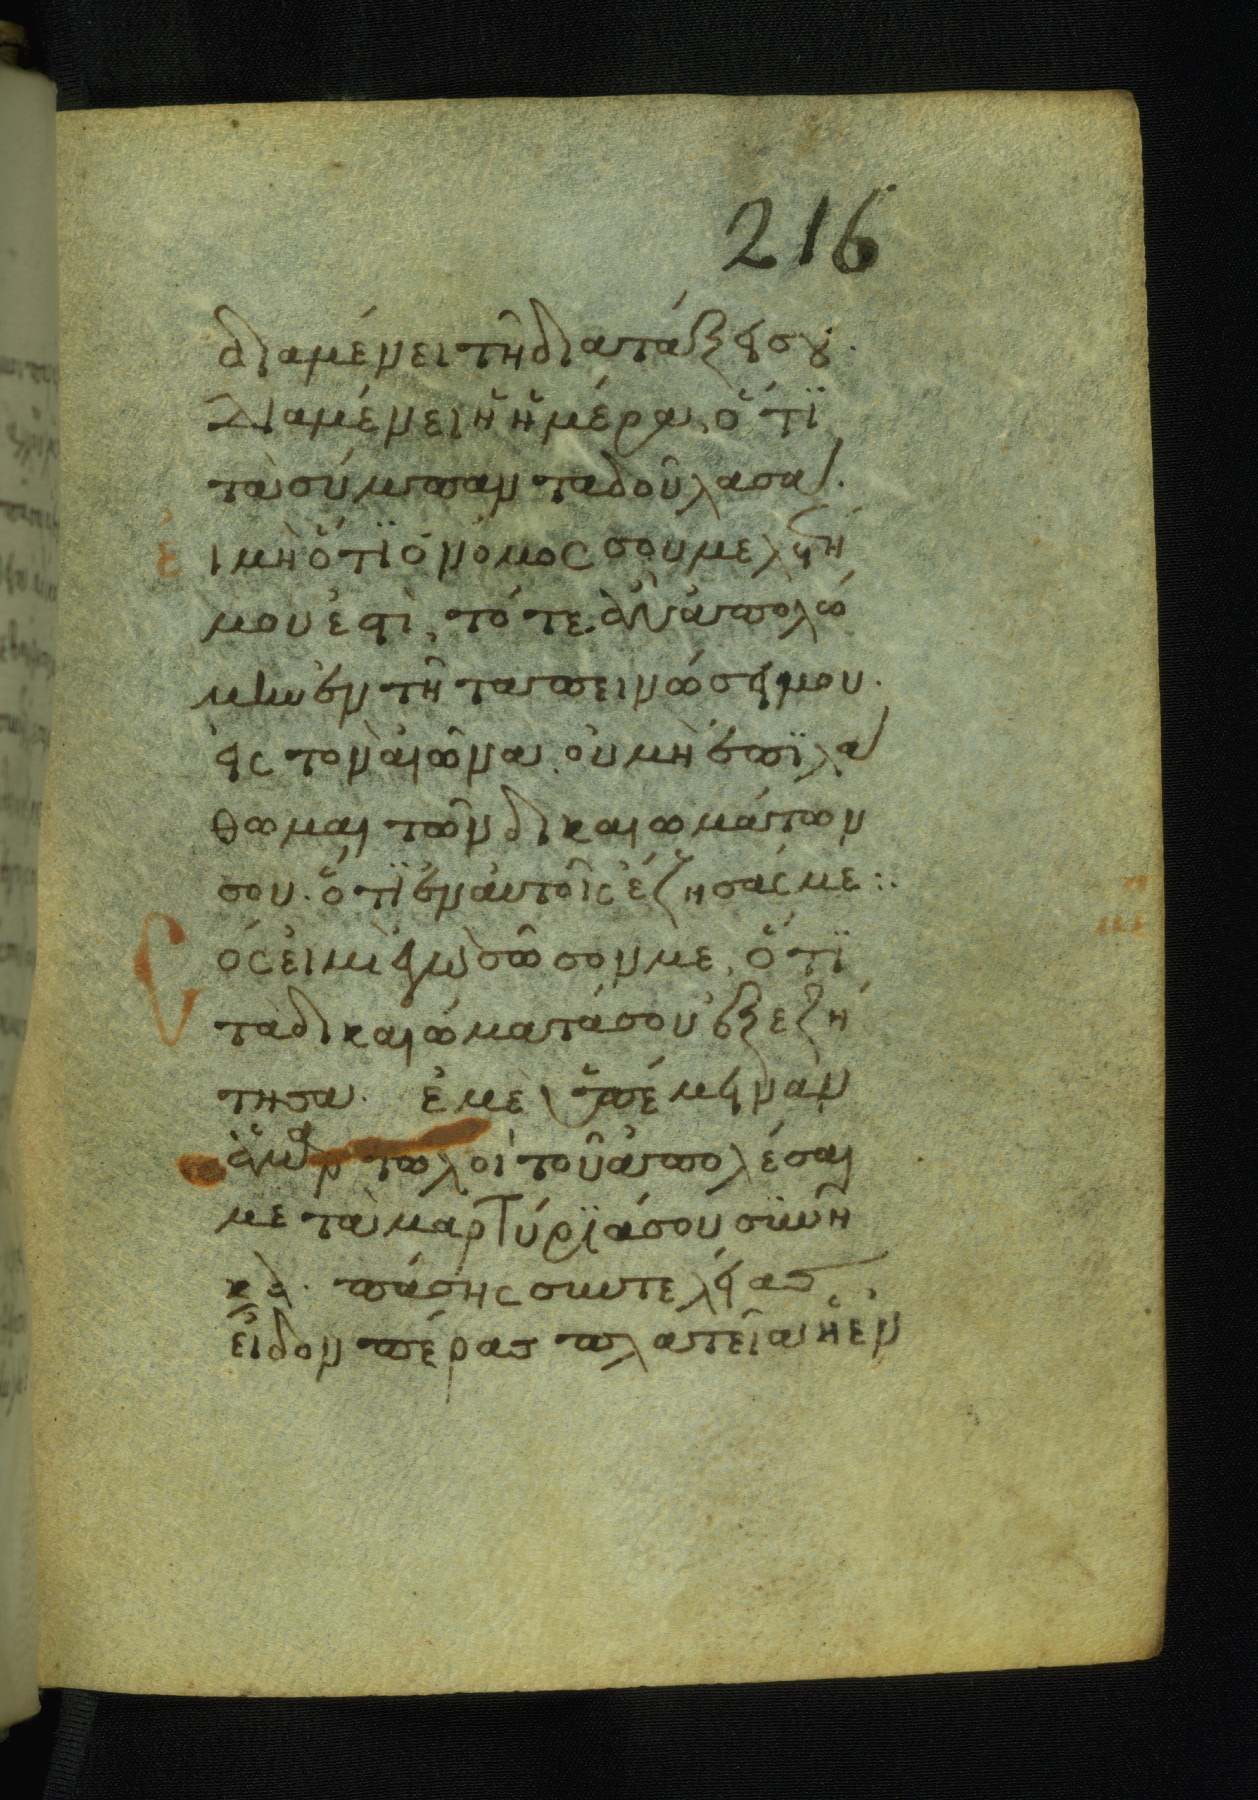 216
διαμένει τῆ διατάξει σου.
Διαμένει ἡ ἡμέρα, ὅτι
τὰ σύμπαντα δοῦλα σα.
ἐι μὴ ὅτι ὁ νόμος σου μελέτη
μου ἐστὶ, τότε ἂν ἀπολώ
μην ἐν τῆ ταπεινώσει μου.
εἰς τὸν αἰῶνα οὐ μὴ ἐπιλά
θωμαι τῶν δικαιωμάτων
σου. ὅτι ἐν αὐτοῖς ἔζησάς με:.
Σός εἰμι ἐγὼ σῶσον με, ὅτι
τὰ δικαιώματά σου ἐξεζή
τησα. ἐμὲ ὑπέμειναν
ἁμαρτωλοὶ τοῦ ἀπολέσαι
με τὰ μαρτύριά σου συνῆ
κα. πάσης συντελείας
εἶδον πέρας πλατεῖα ἡ ἐν